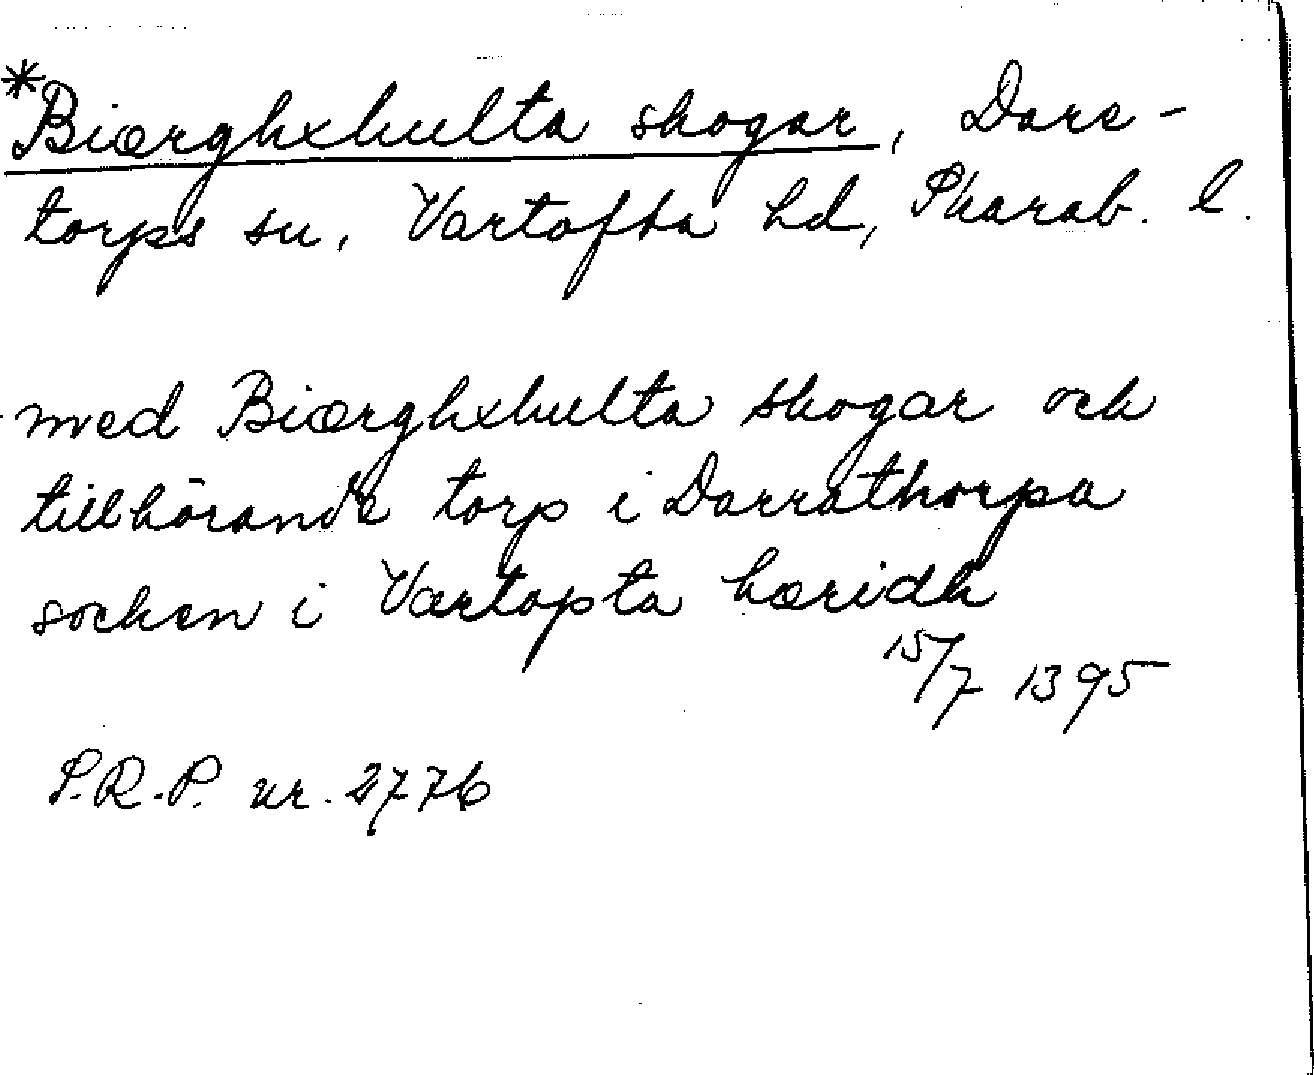 *Biærghxhulta skogar, Dare-
torps sn, Vartofta hd, Skarab. l.
med Biærghxhulta skogar och
tillhörande torp i Darrathorpa
socken i Vartopta hæridh
15/7 1395
S.R.P. nr. 2776